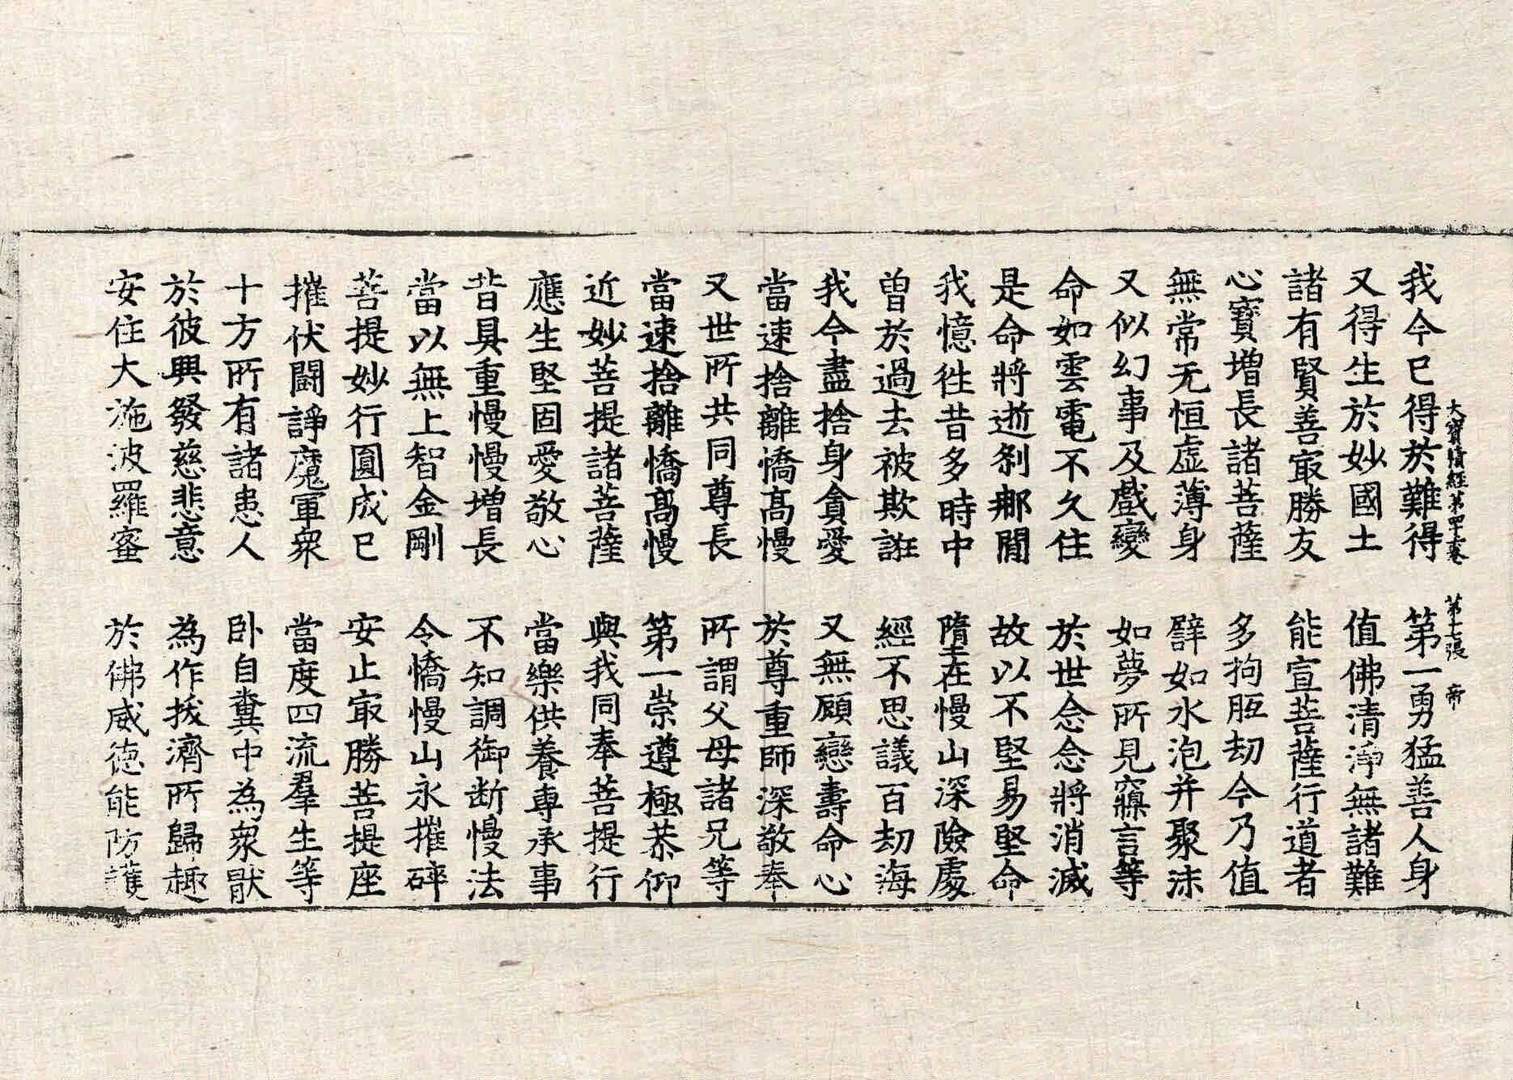 我今已得於難得　第一勇猛善人身
大寶積經第四十二卷　第十七張　帝
又得生於妙國土　值佛清淨無諸難
諸有賢善㝡勝友　能宣菩薩行道者
心寶增長諸菩薩　多拘胝劫今乃值
無常无恒虛薄身　譬如水泡并聚沫
又似幻事及戲變　如夢所見寱言等
命如雲電不久住　於世念念將消滅
是命將逝刹那閒　故以不堅易堅命
我憶徃昔多時中　墮在慢山深險處
曽於過去被欺誑　經不思議百劫海
我今盡捨身貪愛　又無顧戀壽命心
當速捨離憍髙慢　於尊重師深敬奉
又世所共同尊長　所謂父母諸兄等
當速捨離憍髙慢　第一崇遵極恭仰
近妙菩提諸菩薩　與我同奉菩提行
應生堅固愛敬心　當樂供養專承事
昔具重慢慢增長　不知調御断慢法
當以無上智金剛　令憍慢山永摧碎
菩提妙行圓成已　安止㝡勝菩提座
摧伏鬪諍魔軍衆　當度四流羣生等
十方所有諸患人　卧自糞中為衆猒
於彼興發慈悲意　為作拔濟所歸趣
安住大施波羅蜜　於佛威德能防護